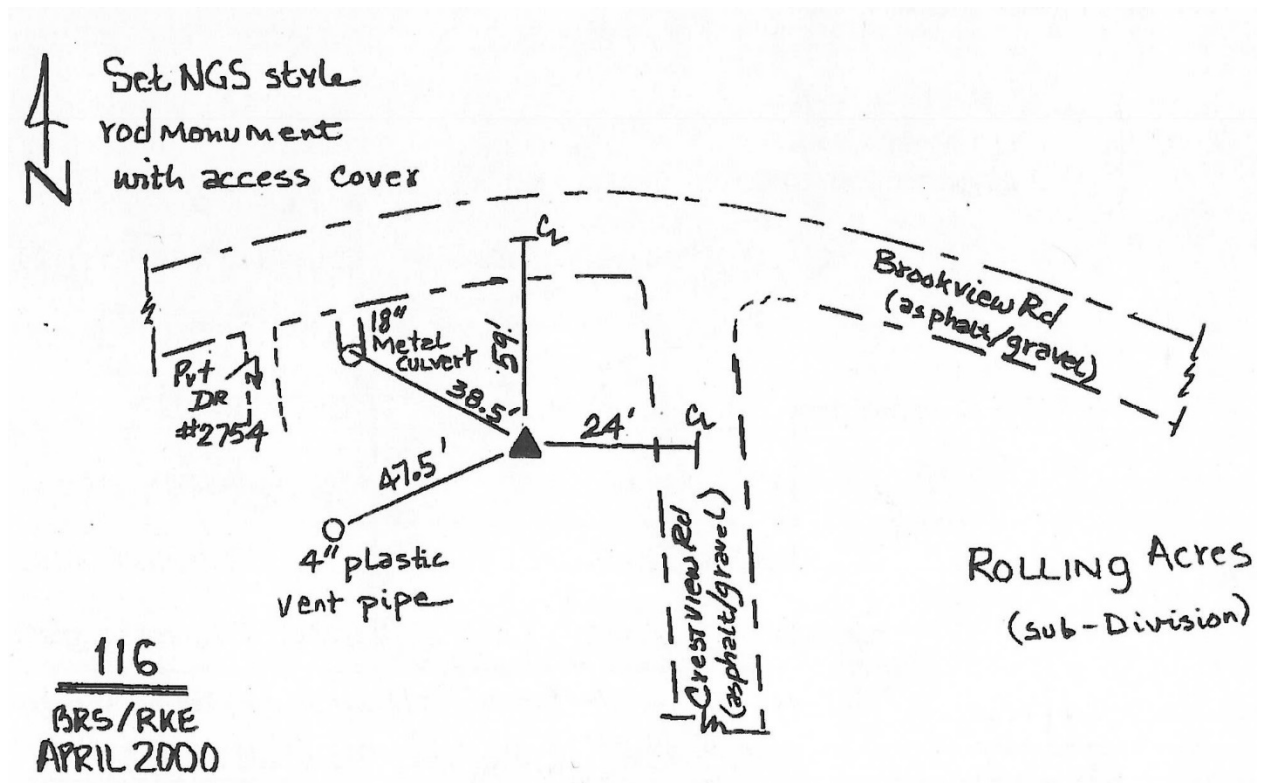 Set NGS style
rod Monument
with access cover
N
CL
Brookview Rd
(asphalt/gravel)
18"
Metal
Culvert
59'
Pvt
DR
#2754
38.5'
24'
CL
47.5'
4" plastic
vent pipe
CrestView Rd
(asphalt/gravel)
ROLLING Acres
(Sub-Division)
116
BRS/RKE
APRIL 2000